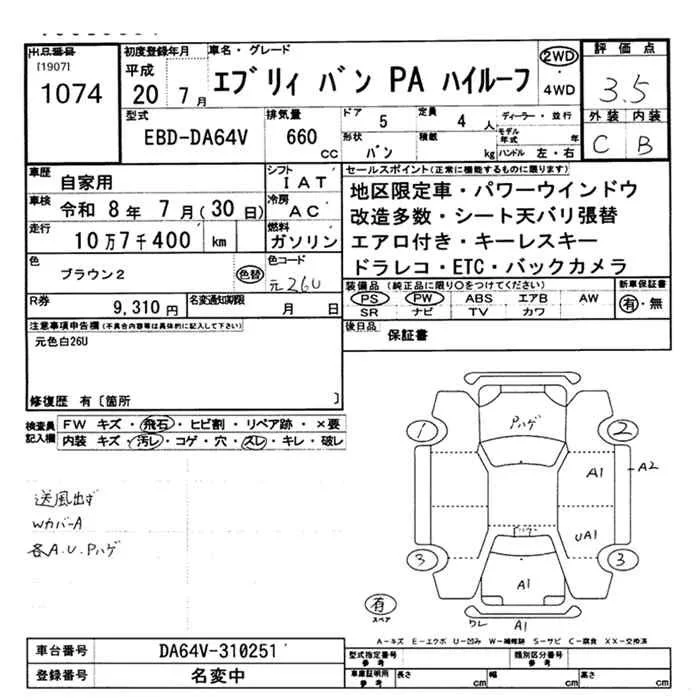 出品番号 [1907] 1074
初度登録年月 平成 20 7月
車名・グレード エブリィ バン PA ハイルーフ
2WD・4WD
評価点 3.5
外装 内装
C B
型式 EBD-DA64V
排気量 660 cc
ドア 5
定員 4人
ディーラー・並行
形状 バン
積載 kg
モデル年式 年
ハンドル 左・右
車歴 自家用
シフト IAT
車検 令和 8年 7月(30日)
冷房 AC
走行 10万7千400 km
燃料 ガソリン
色 ブラウン2 色替
色コード 元26U
R券 9,310円
名変通知期限 月 日
セールスポイント(正常に機能するものに限ります)
地区限定車・パワーウインドウ
改造多数・シート天バリ張替
エアロ付き・キーレスキー
ドラレコ・ETC・バックカメラ
装備品(純正品に限り○をつけてください)
PS PW ABS エアB AW
SR ナビ TV カワ
新車保証書
有・無
後日品 保証書
注意事項申告欄(不具合内容等は具体的に記入して下さい)
元色白26U
修復歴 有〔箇所 〕
検査員記入欄
FW キズ・飛石・ヒビ割・リペア跡・×要
内装 キズ・汚レ・コゲ・穴・スレ・キレ・破レ
送風出ず
WカバーA
各A.U.Pハゲ
Pハゲ
1 2
A1 A2
ハゲ UA1
3 3
A1
有
スペア
ワレ A1
A-キズ E-エクボ U-凹み W-補修跡 S-サビ C-腐食 XX-交換済
車台番号 DA64V-310251
登録番号 名変中
型式指定番号 参考
類別区分番号 参考
車庫証明用 参考 長さ cm 幅 cm 高さ cm